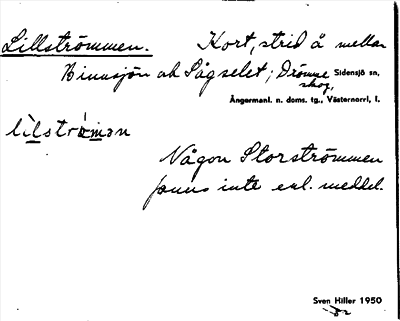 Lillströmmen. Kort, strid å mellan
Binnsjön och Sågselet; Drömme Sidensjö sn,
skog,
Ångermanl. n. doms. tg., Västernorrl, l.
Någon Storströmmen
fanns inte enl. meddel.
Sven Hiller 1950